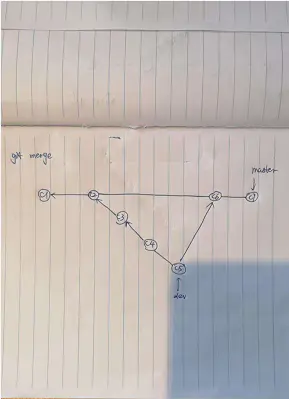 git merge
master
C1 C2 C6 C7
C3
C4
C5
dev